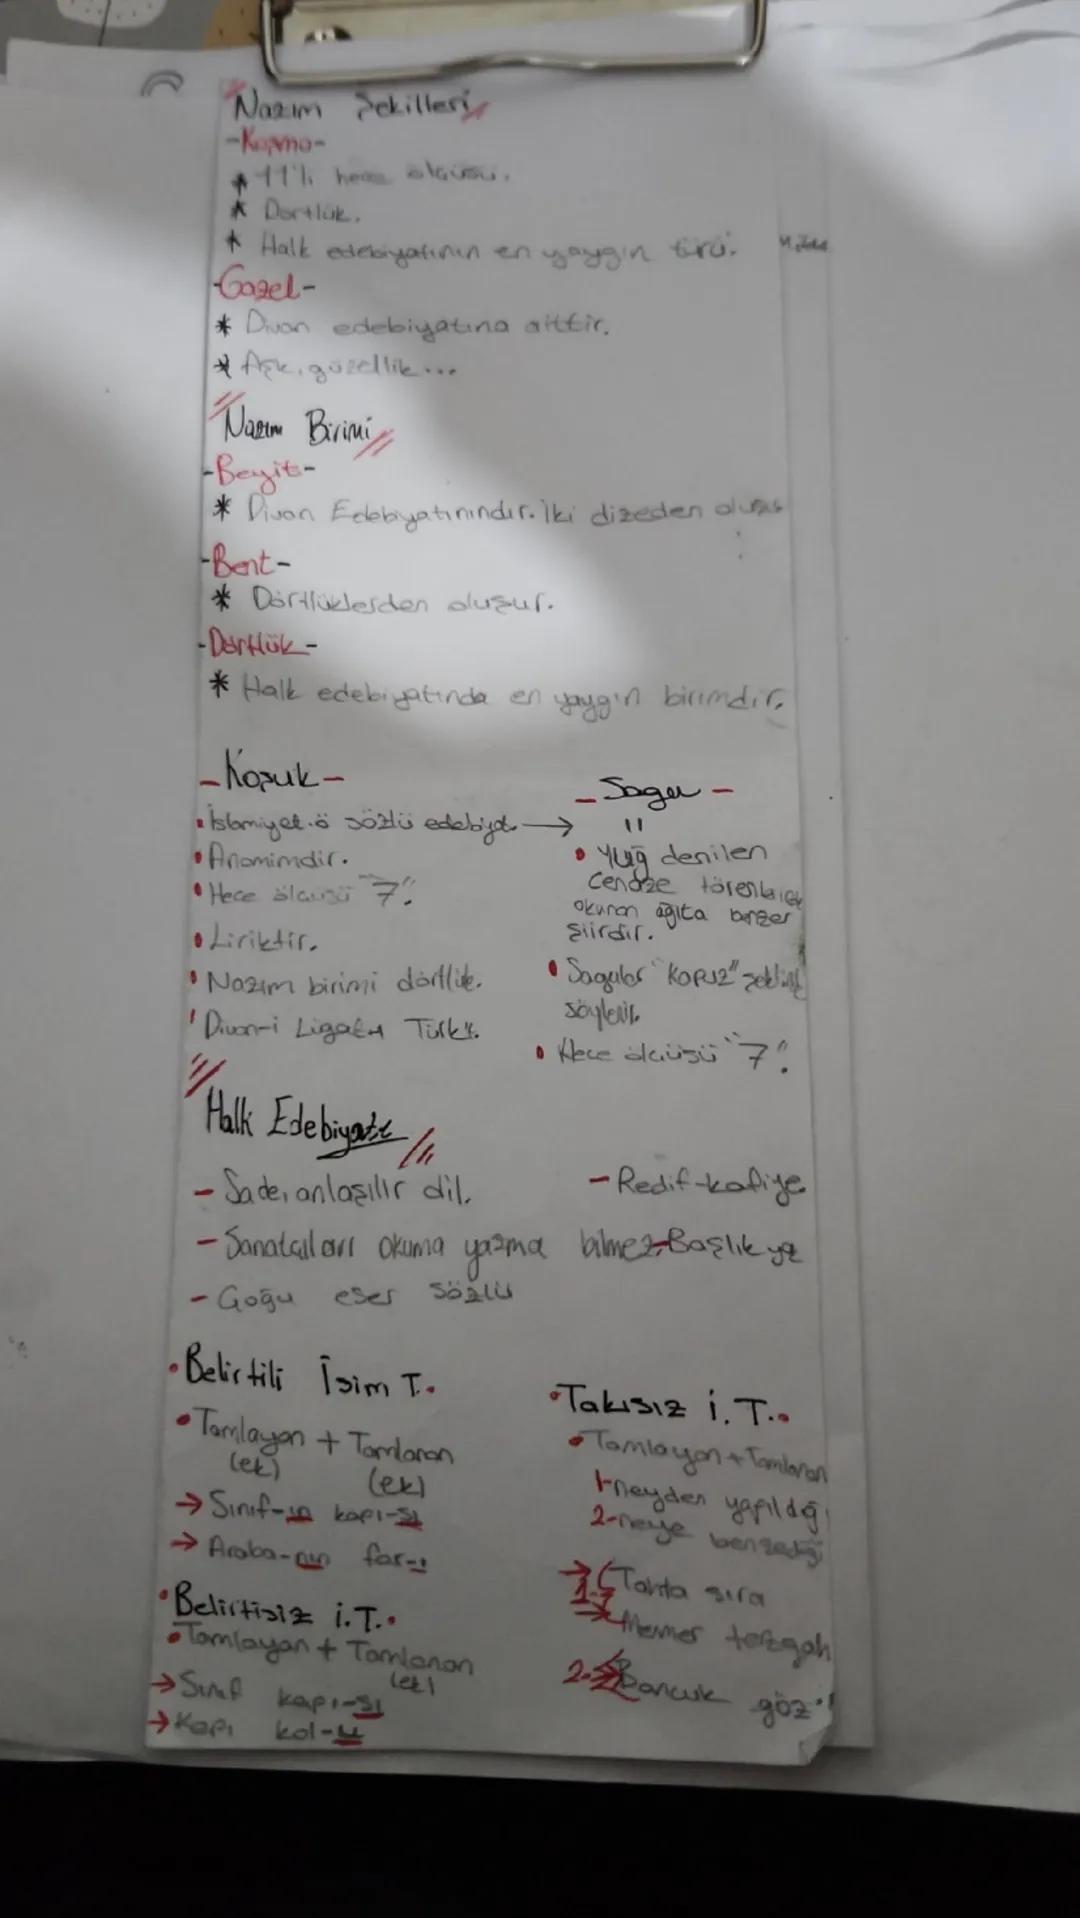 Nazım Şekilleri
-Koşma-
* 11'li hece ölçüsü.
* Dörtlük.
* Halk edebiyatının en yaygın türü.
-Gazel-
* Divan edebiyatına aittir.
* Aşk, güzellik...
Nazım Birimi
-Beyit-
* Divan Edebiyatınındır. İki dizeden oluşur
-Bent-
* Dörtlüklerden oluşur.
-Dörtlük-
* Halk edebiyatında en yaygın birimdir.
-Koşuk-
• İslamiyet.ö sözlü edebiyat. →
• Anonimdir.
• Hece ölçüsü "7".
• Liriktir.
• Nazım birimi dörtlük.
• Divan-i Ligatu Türk'.
-Sagu-
"
• Yuğ denilen
cenaze törenlerinde
okunan ağıta benzer
şiirdir.
• Sagular "Kopuz" şeklinde
söylenir.
• Hece ölçüsü "7".
Halk Edebiyatı
- Sade, anlaşılır dil.
- Redif-kafiye
- Sanatçıları okuma yazma bilmez
- Başlık yok
- Çoğu eser sözlü
• Belirtili İsim T.
• Tamlayan + Tamlanan
(ek) (ek)
→ Sınıf-ın kapı-sı
→ Araba-nın far-ı
• Belirtisiz İ.T.
• Tamlayan + Tamlanan
(ek)
→ Sınıf kapı-sı
→ Kapı kol-u
• Takısız İ.T.
• Tamlayan + Tamlanan
1-neyden yapıldığı
2-neye benzediği
1. → Tahta sıra
→ Mermer tezgah
2. → Boncuk göz